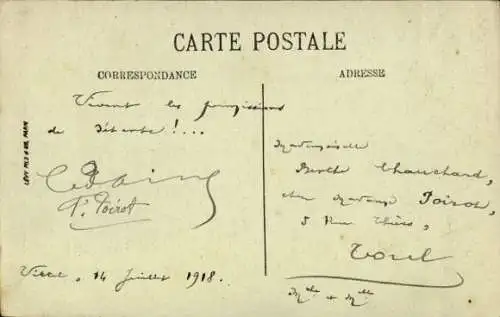 CARTE POSTALE
CORRESPONDANCE
ADRESSE
Vivent les permissions
de détente !...
P. Poirot
Vittel, 14 Juillet 1918.
Mademoiselle
Berthe Chauchard,
chez Madame Poirot,
5 Rue Thiers,
Toul
LÉVY FILS & Cie, PARIS